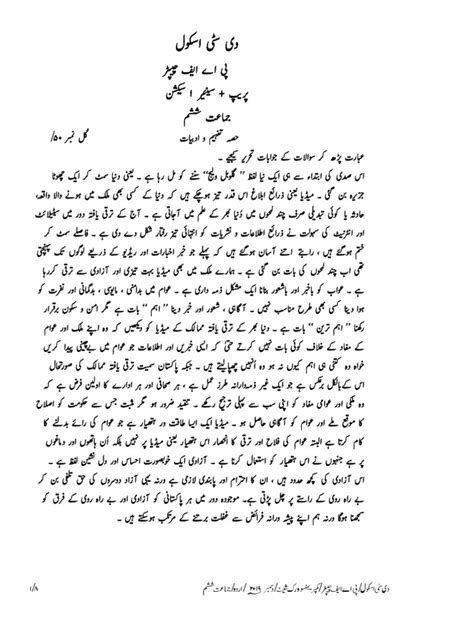 دی سٹی اسکول
پی اے ایف چیپٹر
پریپ + سینئیر ا سیکشن
جماعت ششم
حصہ تفہیم و ادبیات کُل نمبر ۵۰/
عبارت پڑھ کر سوالات کے جوابات تحریر کیجیے ۔
اس صدی کی ابتداء سے ہی ایک نیا لفظ " گلوبل ویلج" سننے کو مل رہا ہے ۔ یعنی دنیا سمٹ کر ایک چھوٹا
جزیرہ بن گئی ۔ میڈیا یعنی ذرائع ابلاغ اس قدر تیز ہوچکے ہیں کہ دنیا کے کسی بھی ملک میں ہونے والا واقعہ،
حادثہ یا کوئی تبدیلی صرف چند لمحوں میں دُنیا بھر کے علم میں آجاتی ہے ۔ آج کے ترقی یافتہ دور میں سیٹیلائٹ
اور انٹرنیٹ کی سہولت نے ذرائع اطلاعات و نشریات کو انتہائی تیز رفتار شکل دے دی ہے ۔ فاصلے سمٹ کر
ختم ہوگئے ہیں ، رابطے اتنے آسان ہوگئے ہیں کہ پہلے جو خبر اخبارات اور ریڈیو کے ذریعے لوگوں تک پہنچتی
تھی اب چند لمحوں کی بات بن گئی ہے ۔ ہمارے ملک میں بھی میڈیا بہت تیزی اور آزادی سے ترقی کررہا
ہے ۔ عواب کو باخبر اور باشعور بنانا ایک مشکل ذمہ داری ہے ۔ عوام میں بدامنی ، مایوسی ، بدگمانی اور نفرت کو
ہوا دینا کسی بھی طرح مناسب نہیں ۔ آگاہی ، شعور اور خبر دینا " اہم " بات ہے مگر امن و سکون برقرار
رکھنا " اہم ترین " بات ہے ۔ دنیا بھر کے ترقی یافتہ ممالک کے میڈیا کو دیکھیں کہ وہ اپنے ملک اور عوام
کے مفاد کے خلاف کوئی بات نہیں کرتے حتیٰ کہ ایسی خبریں اور اطلاعات جو عوام میں بےچینی پیدا کریں
خواہ وہ کتنی ہی اہم کیوں نہ ہو وہ اُنھیں چھپالیتے ہیں ۔ جبکہ پاکستان سمیت ترقی یافتہ ممالک کی صورتحال
اس کےبالکل برعکس ہے جو ایک غیر ذمہ‌دارانہ طرز عمل ہے ، ہر صحافی اور ہر ادارے کا اولین فرض ہے کہ
وہ ملکی اور عوامی مفاد کو اپنی سب سے پہلی ترجیح رکھے ۔ تنقید ضرور ہو مگر مثبت جس سے حکومت کو اصلاح
کا موقع ملے اور عوام کو آگاہی حاصل ہو ۔ میڈیا ایک ایسا طاقت ور ہتھیار ہے جو عوام کی رائے بدلنے کا
کام کرتا ہے البتہ عوام کی فلاح اور ترقی کا انحصار اس ہتھیار یعنی میڈیا پر نہیں بلکہ اُن ہاتھوں اور دماغوں
پر ہے جنہوں نے اس ہتھیار کو استعمال کرنا ہے ۔ آزادی ایک خوبصورت احساس اور دل نشین لفظ ہے ۔
اس آزادی کی کچھ حدود ہیں ، ان کا احترام اور پابندی لازمی ہے ورنہ یہی آزاد دوسروں کی حق تلفی بن کر
بے راہ روی کے راستے پر چل پڑتی ہے۔ موجودہ دور میں ہر پاکستانی کو آزادی اور بے راہ روی کے فرق کو
سمجھنا ہوگا ورنہ ہم اپنے پیشہ ورانہ فرائض سے غفلت برتنے کے مرتکب ہوسکتے ہیں ۔
دی سٹی اسکول/پی اے ایف چیپٹر/ورک شیٹ/دسمبر ۲۰۱۹/اردو/جماعت ششم ۱/۸